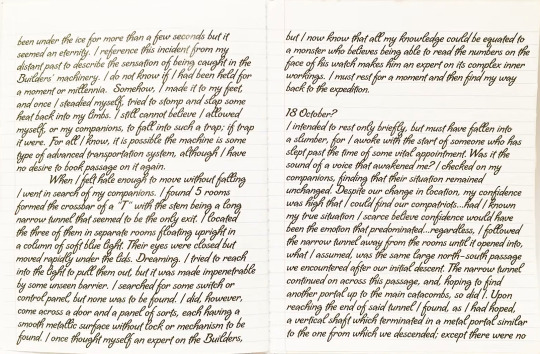 been under the ice for more than a few seconds but it
seemed an eternity. I reference this incident from my
distant past to describe the sensation of being caught in the
Builders' machinery. I do not know if I had been held for
a moment or millennia. Somehow, I made it to my feet,
and once I steadied myself, tried to stomp and slap some
heat back into my limbs. I still cannot believe I allowed
myself, or my companions, to fall into such a trap; if trap
it were. For all I know, it is possible the machine is some
type of advanced transportation system, although I have
no desire to book passage on it again.
When I felt hale enough to move without falling
I went in search of my companions. I found 5 rooms
formed the crossbar of a "T" with the stem being a long
narrow tunnel that seemed to be the only exit. I located
the three of them in separate rooms floating upright in
a column of soft blue light. Their eyes were closed but
moved rapidly under the lids. Dreaming. I tried to reach
into the light to pull them out, but it was made impenetrable
by some unseen barrier. I searched for some switch or
control panel, but none was to be found. I did, however,
come across a door and a panel of sorts, each having a
smooth metallic surface without lock or mechanism to be
found. I once thought myself an expert on the Builders,
but I now know that all my knowledge could be equated to
a monster who believes being able to read the numbers on the
face of his watch makes him an expert on its complex inner
workings. I must rest for a moment and then find my way
back to the expedition.
18 October?
I intended to rest only briefly, but must have fallen into
a slumber, for I awoke with the start of someone who has
slept past the time of some vital appointment. Was it the
sound of a voice that awakened me? I checked on my
companions, finding that their situation remained
unchanged. Despite our change in location, my confidence
was high that I could find our compatriots...had I known
my true situation I scarce believe confidence would have
been the emotion that predominated...regardless, I followed
the narrow tunnel away from the rooms until it opened into,
what I assumed, was the same large north-south passage
we encountered after our initial descent. The narrow tunnel
continued on across this passage, and, hoping to find
another portal up to the main catacombs, so did I. Upon
reaching the end of said tunnel I found, as I had hoped,
a vertical shaft which terminated in a metal portal similar
to the one from which we descended; except there were no